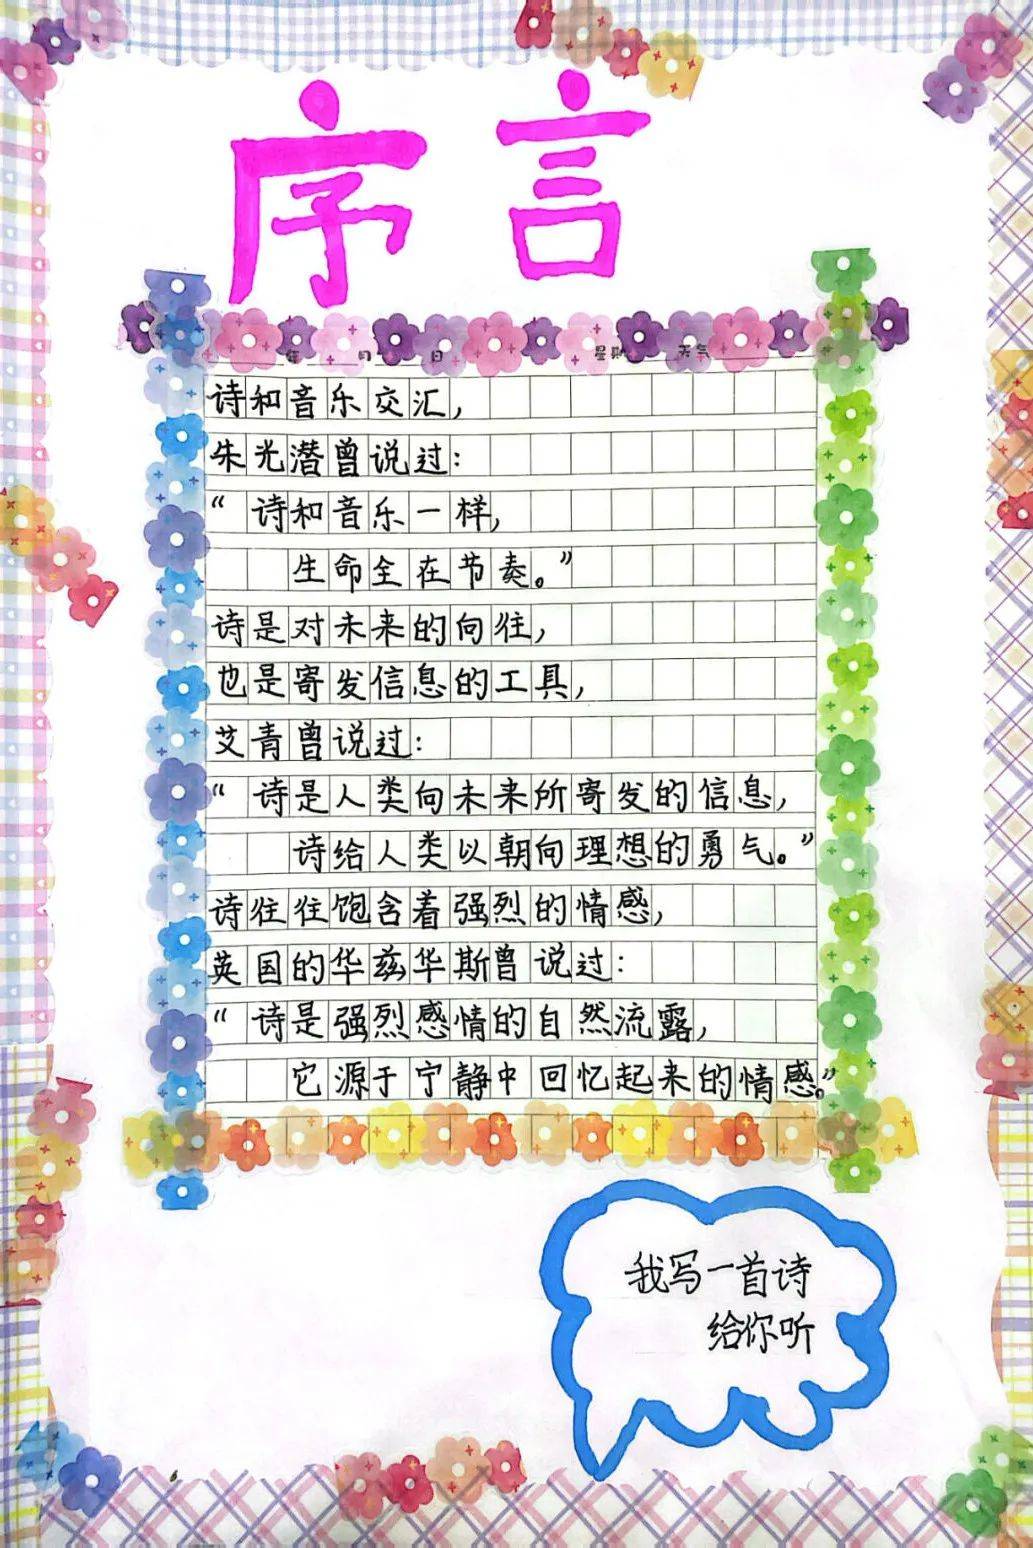 序言
年 月 日 星期 天气
诗和音乐交汇，
朱光潜曾说过：
“诗和音乐一样，
生命全在节奏。”
诗是对未来的向往，
也是寄发信息的工具，
艾青曾说过：
“诗是人类向未来所寄发的信息，
诗给人类以朝向理想的勇气。”
诗往往饱含着强烈的情感，
英国的华兹华斯曾说过：
“诗是强烈感情的自然流露，
它源于宁静中回忆起来的情感。”
我写一首诗
给你听